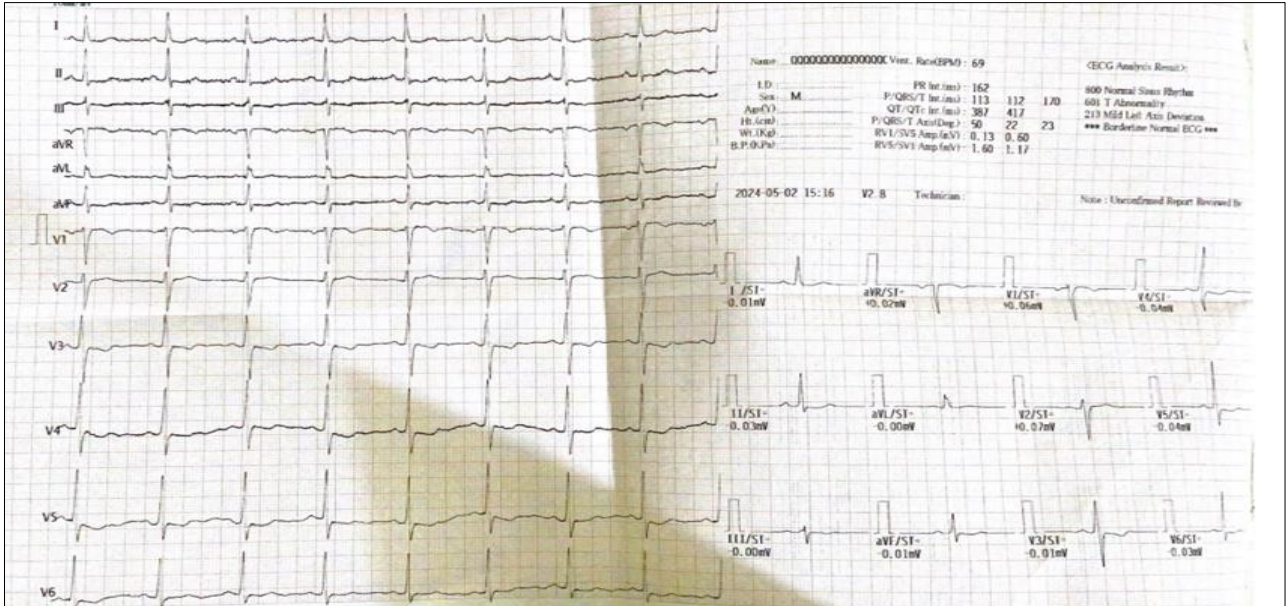 I
II
III
aVR
aVL
aVF
V1
V2
V3
V4
V5
V6
Name: Vent. Rate(BPM) : 69
I.D PR Int.(ms) : 162
Sex M P/QRS/T Int.(ms) : 113 112 170
Age(Y) QT/QTc Int.(ms) : 387 417
Ht.(cm) P/QRS/T Axis(Deg.) : 50 22 23
Wt.(Kg) RV1/SV5 Amp.(mV) : 0.13 0.60
B.P.(KPa) RV5/SV1 Amp.(mV) : 1.60 1.17
<ECG Analysis Result>
800 Normal Sinus Rhythm
601 T Abnormality
213 Mild Left Axis Deviation
*** Borderline Normal ECG ***
2024-05-02 15:16 V2.8 Technician :
Note : Unconfirmed Report Reviewed By
I /ST-
0.01mV
aVR/ST-
+0.02mV
V1/ST-
+0.06mV
V4/ST-
-0.04mV
II/ST-
0.03mV
aVL/ST-
-0.00mV
V2/ST-
+0.07mV
V5/ST-
-0.04mV
III/ST-
-0.00mV
aVF/ST-
-0.01mV
V3/ST-
-0.01mV
V6/ST-
-0.03mV